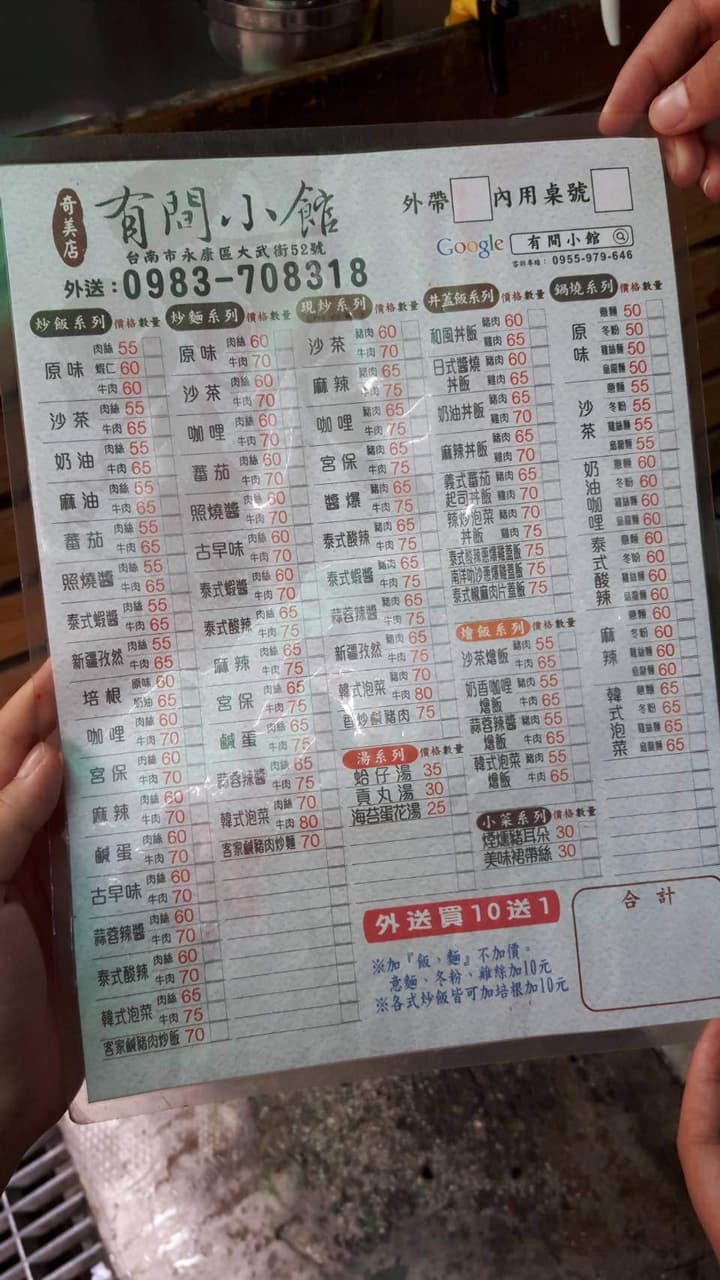 奇美店
有間小館
外帶 內用桌號
台南市永康區大武街52號
Google 有間小館
外送：0983-708318
客訴專線： 0955-979-646
炒飯系列 價格 數量
原味 肉絲 55
蝦仁 60
牛肉 60
沙茶 肉絲 55
牛肉 65
奶油 肉絲 55
牛肉 65
麻油 肉絲 55
牛肉 65
蕃茄 肉絲 55
牛肉 65
照燒醬 肉絲 55
牛肉 65
泰式蝦醬 肉絲 55
牛肉 65
新疆孜然 肉絲 55
牛肉 65
培根 原味 60
奶油 65
咖哩 肉絲 60
牛肉 70
宮保 肉絲 60
牛肉 70
麻辣 肉絲 60
牛肉 70
鹹蛋 肉絲 60
牛肉 70
古早味 肉絲 60
牛肉 70
蒜蓉辣醬 肉絲 60
牛肉 70
泰式酸辣 肉絲 60
牛肉 70
韓式泡菜 肉絲 65
牛肉 75
客家鹹豬肉炒飯 70
炒麵系列 價格 數量
原味 肉絲 60
牛肉 70
沙茶 肉絲 60
牛肉 70
咖哩 肉絲 60
牛肉 70
蕃茄 肉絲 60
牛肉 70
照燒醬 肉絲 60
牛肉 70
古早味 肉絲 60
牛肉 70
泰式蝦醬 肉絲 60
牛肉 70
泰式酸辣 肉絲 65
牛肉 75
麻辣 肉絲 65
牛肉 75
宮保 肉絲 65
牛肉 75
鹹蛋 肉絲 65
牛肉 75
蒜蓉辣醬 肉絲 65
牛肉 75
韓式泡菜 肉絲 70
牛肉 80
客家鹹豬肉炒麵 70
現炒系列 價格 數量
沙茶 豬肉 60
牛肉 70
麻辣 豬肉 65
牛肉 75
咖哩 豬肉 65
牛肉 75
宮保 豬肉 65
牛肉 75
醬爆 豬肉 65
牛肉 75
泰式酸辣 豬肉 65
牛肉 75
泰式蝦醬 豬肉 65
牛肉 75
蒜蓉辣醬 豬肉 65
牛肉 75
新疆孜然 豬肉 65
牛肉 75
韓式泡菜 豬肉 70
牛肉 80
香炒鹹豬肉 75
湯系列 價格 數量
蛤仔湯 35
貢丸湯 30
海苔蛋花湯 25
丼蓋飯系列 價格 數量
和風丼飯 豬肉 60
雞肉 65
日式醬燒丼飯 豬肉 60
雞肉 65
奶油丼飯 豬肉 65
雞肉 70
麻辣丼飯 豬肉 65
雞肉 70
義式蕃茄起司丼飯 豬肉 65
雞肉 70
辣炒泡菜丼飯 豬肉 70
雞肉 75
泰式酸辣蔥爆雞蓋飯 75
南洋叻沙蔥爆雞蓋飯 75
泰式椒麻肉片蓋飯 75
燴飯系列 價格 數量
沙茶燴飯 豬肉 55
牛肉 65
奶香咖哩燴飯 豬肉 55
牛肉 65
蒜蓉辣醬燴飯 豬肉 55
牛肉 65
韓式泡菜燴飯 豬肉 55
牛肉 65
小菜系列 價格 數量
煙燻豬耳朵 30
美味裙帶絲 30
鍋燒系列 價格 數量
原味 意麵 50
冬粉 50
雞絲麵 50
烏龍麵 50
沙茶 意麵 55
冬粉 55
雞絲麵 55
烏龍麵 55
奶油咖哩 意麵 60
冬粉 60
雞絲麵 60
烏龍麵 60
泰式酸辣 意麵 60
冬粉 60
雞絲麵 60
烏龍麵 60
麻辣 意麵 60
冬粉 60
雞絲麵 60
烏龍麵 60
韓式泡菜 意麵 65
冬粉 65
雞絲麵 65
烏龍麵 65
外送買10送1
合計
※加『飯、麵』不加價。
意麵、冬粉、雞絲加10元
※各式炒飯皆可加培根加10元